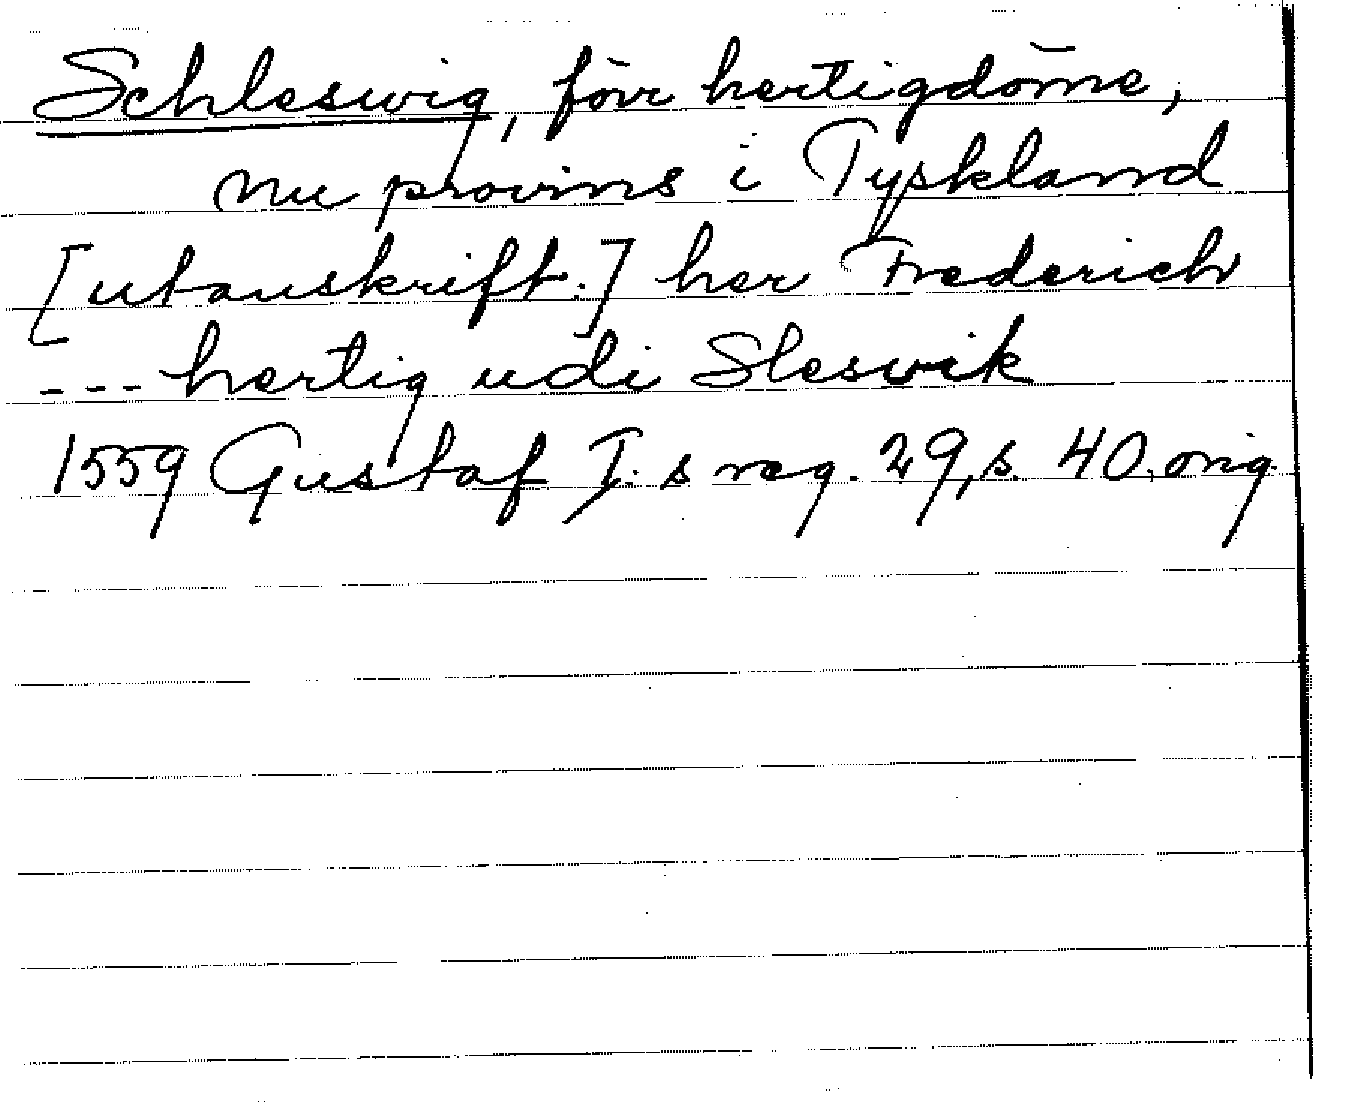 Schleswig, förr hertigdöme,
nu provins i Tyskland
[utanskrift:] her Frederich
--- hertig udi Slesvik
1559 Gustaf I:s reg. 29, s. 40, orig